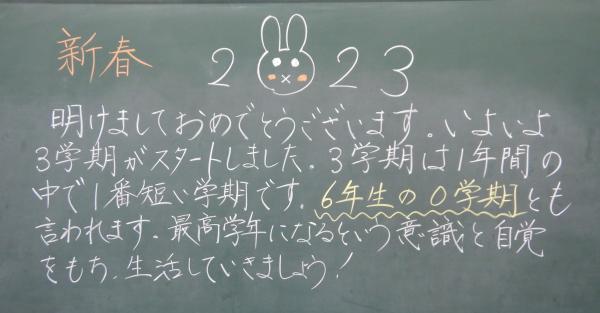 新春 2023
明けましておめでとうございます。いよいよ
3学期がスタートしました。3学期は1年間の
中で1番短い学期です。6年生の0学期とも
言われます。最高学年になるという意識と自覚
をもち、生活していきましょう!